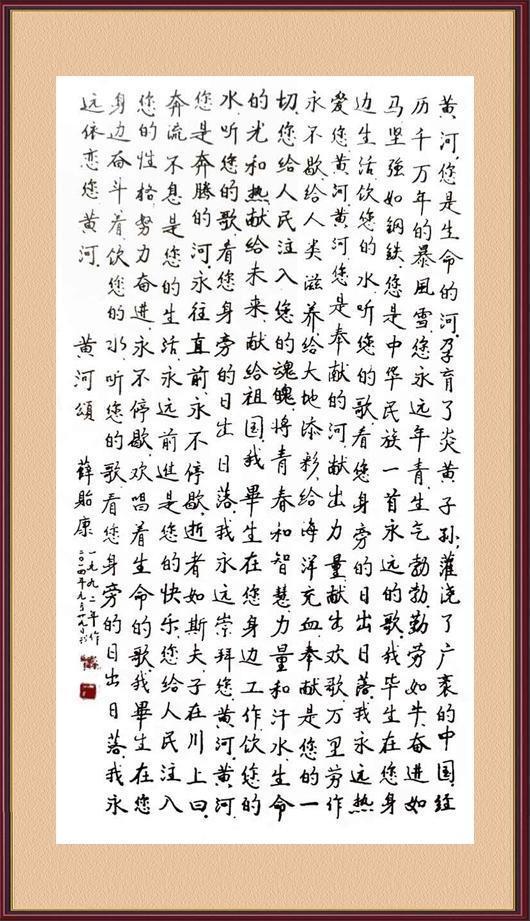 黄河,您是生命的河,孕育了炎黄子孙,灌浇了广袤的中国,经
历千万年的暴風雪,您永远年青,生气勃勃,勤劳如牛,奋进如
马,坚強如鋼鉄,您是中华民族一首永远的歌,我毕生在您身
边生活,饮您的水,听您的歌,看您身旁的日出日落,我永远热
爱您黄河,黄河您是奉献的河,献出力量,献出欢歌,万里劳作
永不歇,给人类滋养,给大地添彩,给海洋充血,奉献是您的一
切,您给人民注入您的魂魄,将青春和智慧,力量和汗水,生命
的光和热,献给未来,献给祖国,我畢生在您身边工作,饮您的
水,听您的歌,看您身旁的日出日落,我永远崇拜您,黄河,黄河
您是奔腾的河,永往直前,永不停歇,逝者如斯夫,子在川上曰,
奔流不息是您的生活,永远前進是您的快乐,您给人民注入
您的性格,努力奋进,永不停歇,欢唱着生命的歌,我畢生在您
身边奋斗着,饮您的水,听您的歌,看您身旁的日出日落,我永
远依恋您黄河.
黄河頌 薛貽康
一九九二年作